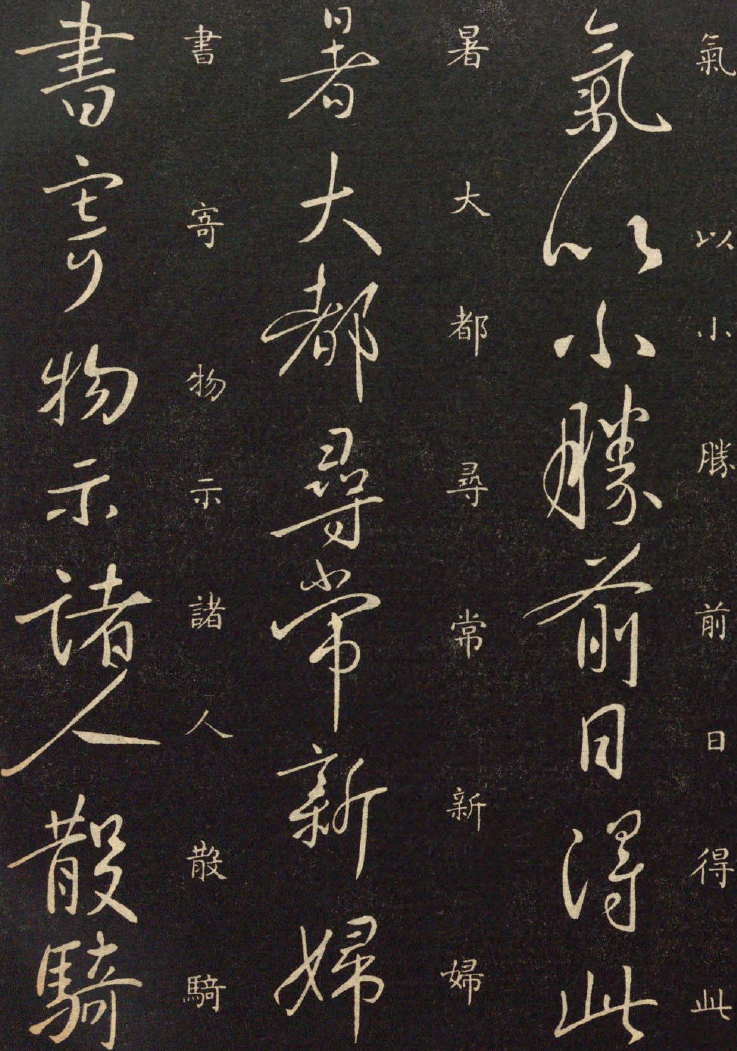 氣以小勝前日得此
氣以小勝前日得此
暑大都尋常新婦
暑大都尋常新婦
書寄物示諸人散騎
書寄物示諸人散騎